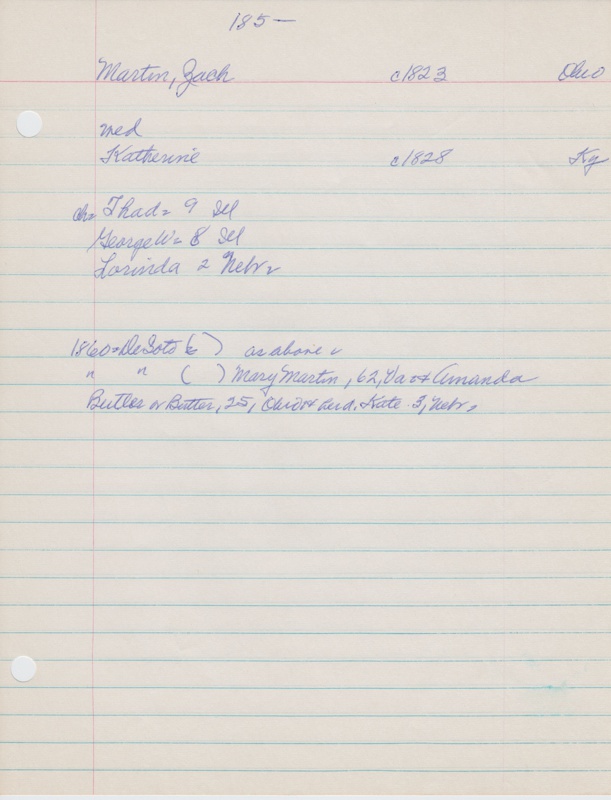 185-
Martin, Zach c1823 Ohio
med
Katherine c1828 Ky
ch= Thad= 9 Ill
George W= 8 Ill
Lorinda 2 Nebr
1860=DeSoto ( ) as above
" " ( ) Mary Martin, 62, Va + Amanda
Butler or Butter, 25, Ohio + Kate 3, Nebr